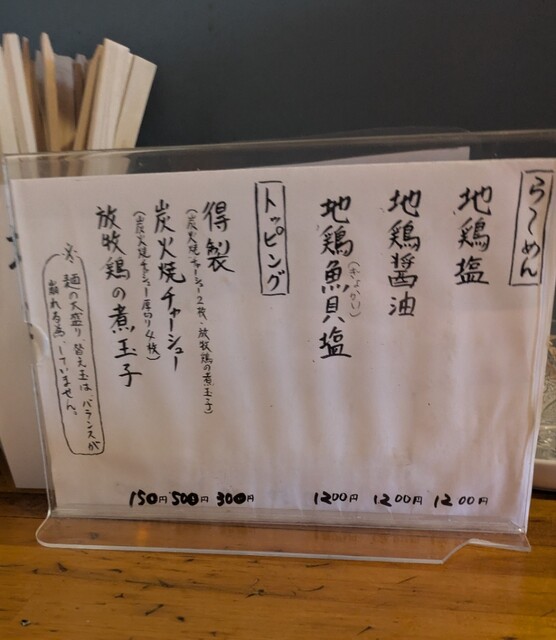 らーめん
地鶏塩 1200円
地鶏醤油 1200円
地鶏魚貝塩 1200円
(ぎょかい)
トッピング
得製 300円
(炭火焼チャーシュー2枚・放牧鶏の煮玉子)
炭火焼チャーシュー 500円
(炭火焼チャーシュー厚切り4枚)
放牧鶏の煮玉子 150円
※麺の大盛り、替え玉は、バランスが
崩れる為、していません。